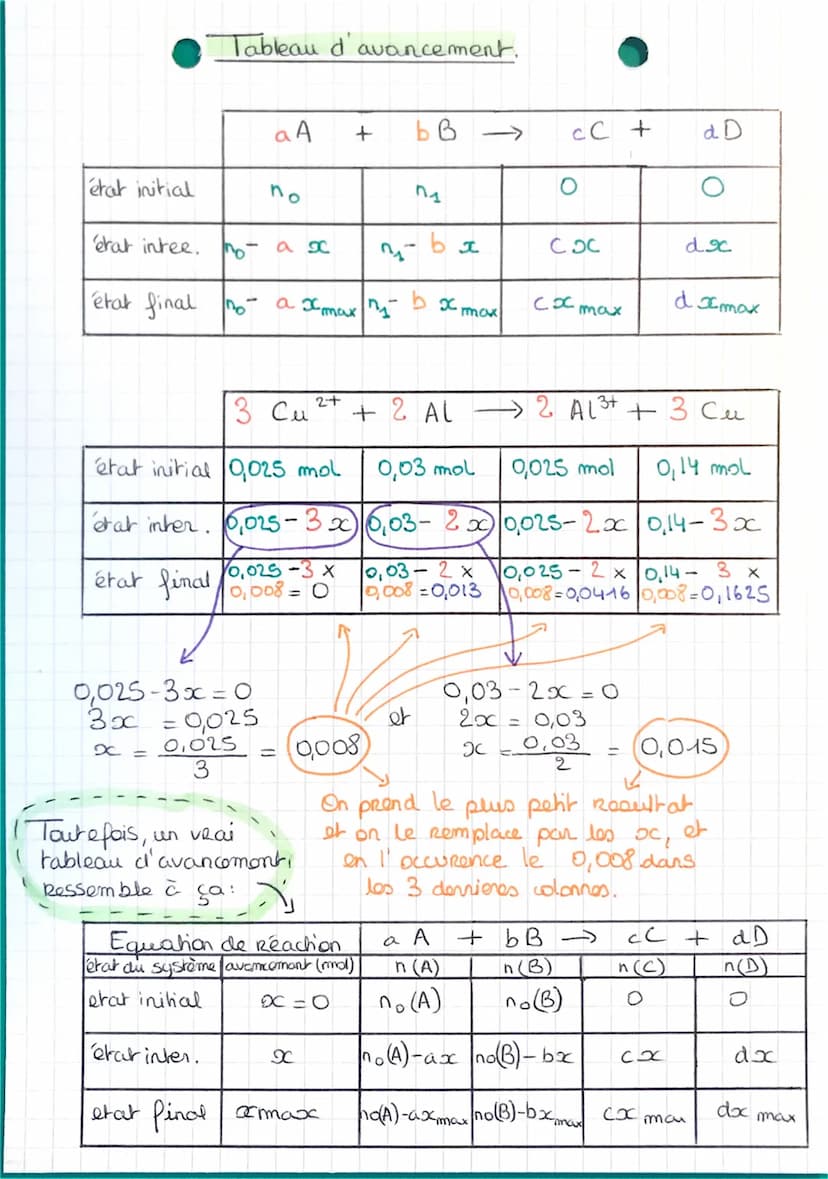 Tableau d'avancement.
aA + bB → cC + dD
état initial n₀ n₁ 0 0
état inter. n₀- a x n₁- b x c x d x
état final n₀- a xmax n₁- b xmax c x max d xmax
3 Cu²⁺ + 2 Al → 2 Al³⁺ + 3 Cu
état initial 0,025 mol 0,03 mol 0,025 mol 0,14 mol
état inter. 0,025-3x 0,03- 2x 0,025-2x 0,14-3x
état final 0,025 -3 x 0,03 - 2 x 0,025 - 2 x 0,14 - 3 x
0,008 = 0 0,008 =0,013 0,008=0,0416 0,008=0,1625
0,025-3x = 0 0,03-2x = 0
3x = 0,025 et 2x = 0,03
x = 0,025/3 = 0,008 x = 0,03/2 = 0,015
On prend le plus petit résultat
et on le remplace par les x, et
en l'occurence le 0,008 dans
les 3 dernieres colonnes.
Toutefois, un vrai
tableau d'avancement
ressemble à ça:
Equation de réaction a A + bB → cC + dD
état du système avancement (mol) n(A) n(B) n(C) n(D)
etat initial x = 0 n₀(A) n₀(B) 0 0
état inter. x n₀(A)-ax n₀(B)-bx cx dx
etat final xmax n₀(A)-axmax n₀(B)-bxmax cx max dx max